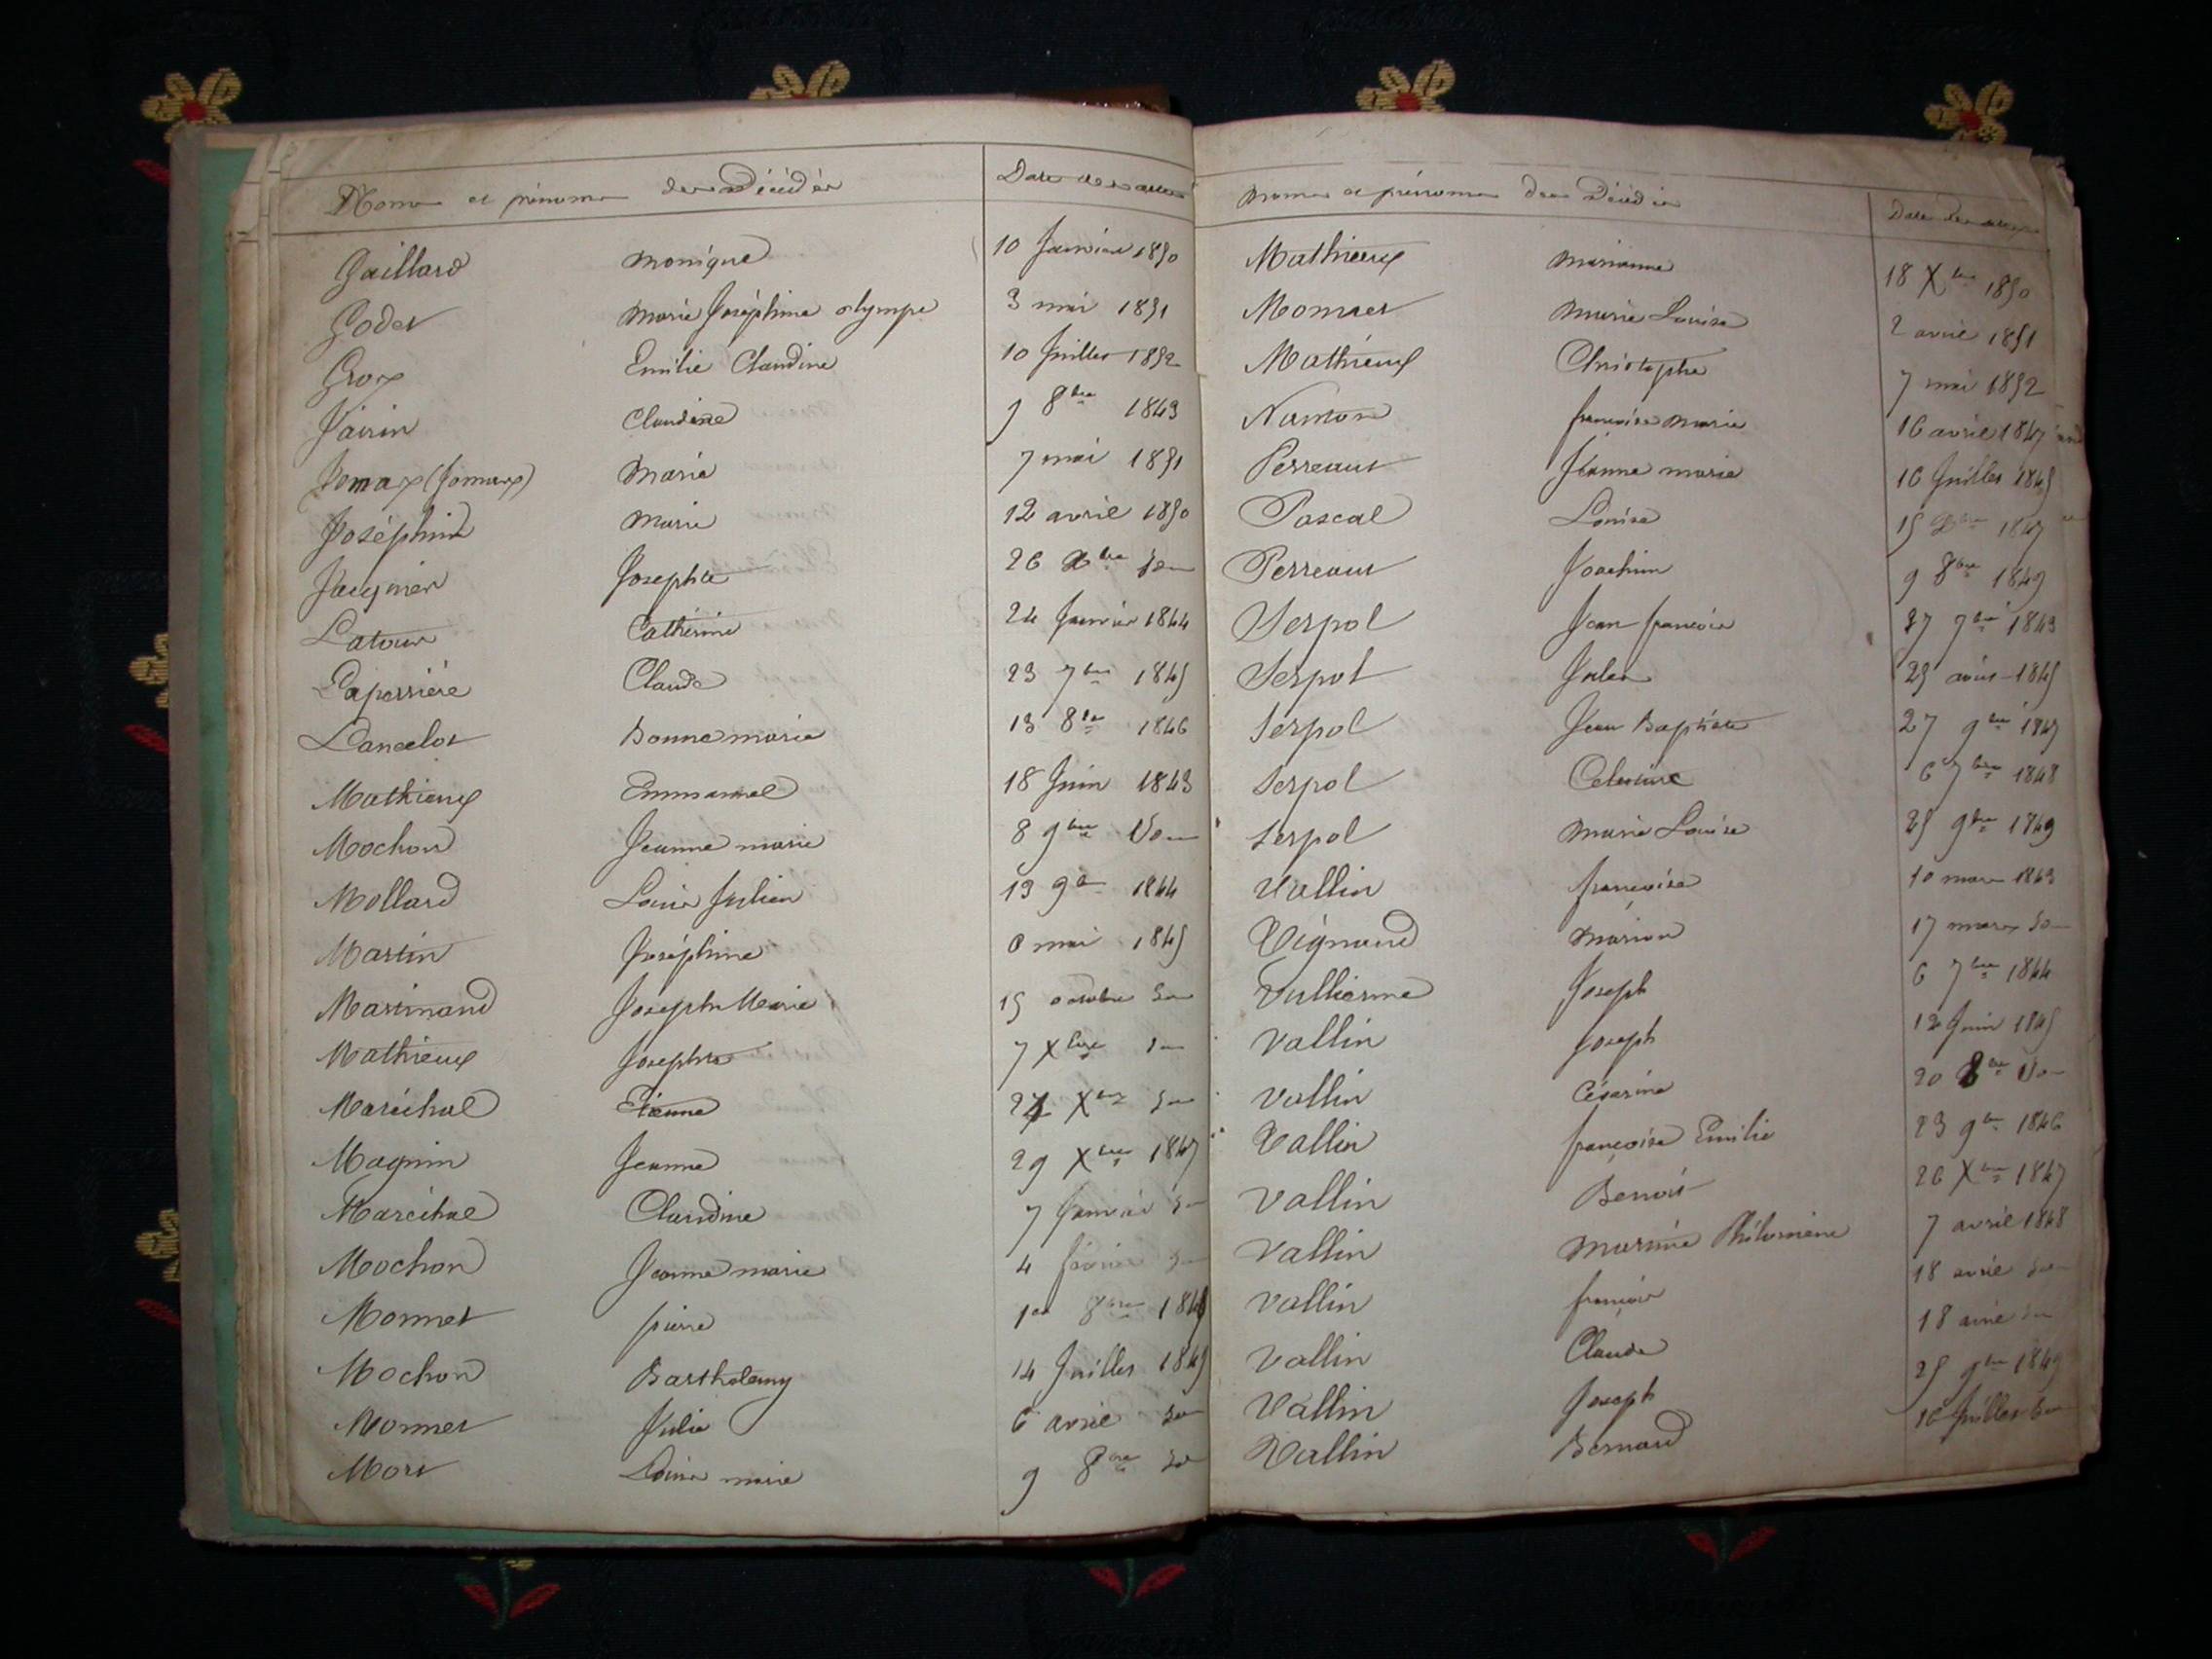 Noms et prénoms des Décédés Date des actes
Gaillard Monique 10 Janvier 1850
Godet Marie Joséphine olympe 3 mai 1851
Grox Emilie Claudine 10 Juillet 1852
Claudine 9 8bre 1843
Jomax (Jomarx) Marie 7 mai 1851
Joséphine Marie 12 avril 1850
Jacquier Josephte 26 Xbre do
Latour Catherine 24 Janvier 1844
Laperrière Claude 23 7bre 1845
Lancelot Bonne marie 13 8bre 1846
Mathieux Emmanuel 18 Juin 1843
Mochon Jeanne marie 8 9bre do
Mollard Louis Julien 13 9bre 1844
Martin Joséphine 6 mai 1845
Martinand Joseph Marie 15 octobre do
Mathieux Josephte 7 Xbre do
Maréchal Etienne Xbre do
Magnin Jeanne 29 Xbre 1847
Maréchal Claudine 7 Janvier do
Mochon Jeanne marie 4 février do
Monnet pierre 1er 8bre
Mochon Barthelemy 14 Juillet 1849
Monnet Julie 6 avril do
Mort Louise marie 9 8bre do
Noms et prénoms des Décédés Date des actes
Mathieux Marianne 18 Xbre 1850
Monnet Marie Louise 2 avril 1851
Mathieux Christophe 7 mai 1852
Nanton françoise Marie 16 avril 1847
Perreaut Jeanne marie 16 Juillet 1845
Pascal Louise 15 1847
Perreaut Joachim 9 8bre 1849
Serpol Jean françois 27 7bre 1843
Serpol Jules 25 août 1845
Serpol Jean Baptiste 27 9bre 1845
Serpol Celestine 6 7bre 1848
Serpol Marie Louise 25 9bre 1849
Vallin françoise 10 mars 1843
Vignand Marion 17 mars do
Vullierme Joseph 6 7bre 1844
Vallin Joseph 12 Juin 1845
Vallin Césarine 20 8bre do
Vallin françoise Emilie 23 9bre 1846
Vallin Benoit 26 Xbre 1847
Vallin Philomène 7 avril 1848
Vallin françois 18 avril do
Vallin Claude 18 avril do
Vallin Joseph 25 9bre 1849
Vallin Bernard 16 Juillet